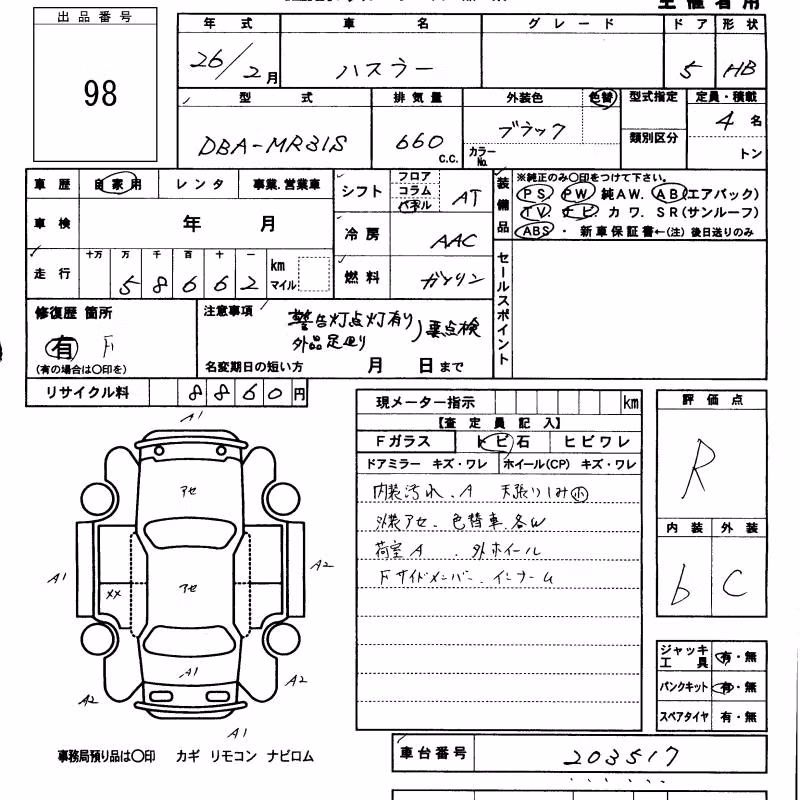 主催者用
出品番号
98
年式 車名 グレード ドア 形状
26/2月 ハスラー 5 HB
型式 排気量 外装色 色替 型式指定 定員・積載
DBA-MR31S 660 C.C. ブラック カラーNo. 類別区分 4名
トン
車歴 自家用 レンタ 事業.営業車
シフト フロア コラム パネル AT
装備品 ※純正のみ〇印をつけて下さい。
PS PW 純AW. AB(エアバック)
TV. ナビ. カワ. SR(サンルーフ)
ABS ・ 新車保証書←(注)後日送りのみ
車検 年 月
冷房 AAC
走行 十万 万 千 百 十 一 km マイル
58662
燃料 ガソリン
セールスポイント
修復歴 箇所
有 F
(有の場合は〇印を)
注意事項 警告灯点灯有り 要点検
外品足回り
名変期日の短い方 月 日まで
リサイクル料 8860円
現メーター指示 km
【査定員記入】
Fガラス トビ石 ヒビワレ
ドアミラー キズ・ワレ ホイール(CP) キズ・ワレ
内装汚れ、A 天張りしみ小
外装アセ、色替車、各W
荷室A 、外ホイール
Fサイドメンバー、インナーム
評価点
R
内装 外装
b C
ジャッキ工具 有・無
パンクキット 有・無
スペアタイヤ 有・無
A1
アセ
A1 A2
××
アセ
A1
A2 A2
A1
事務局預り品は〇印 カギ リモコン ナビロム
車台番号 203517